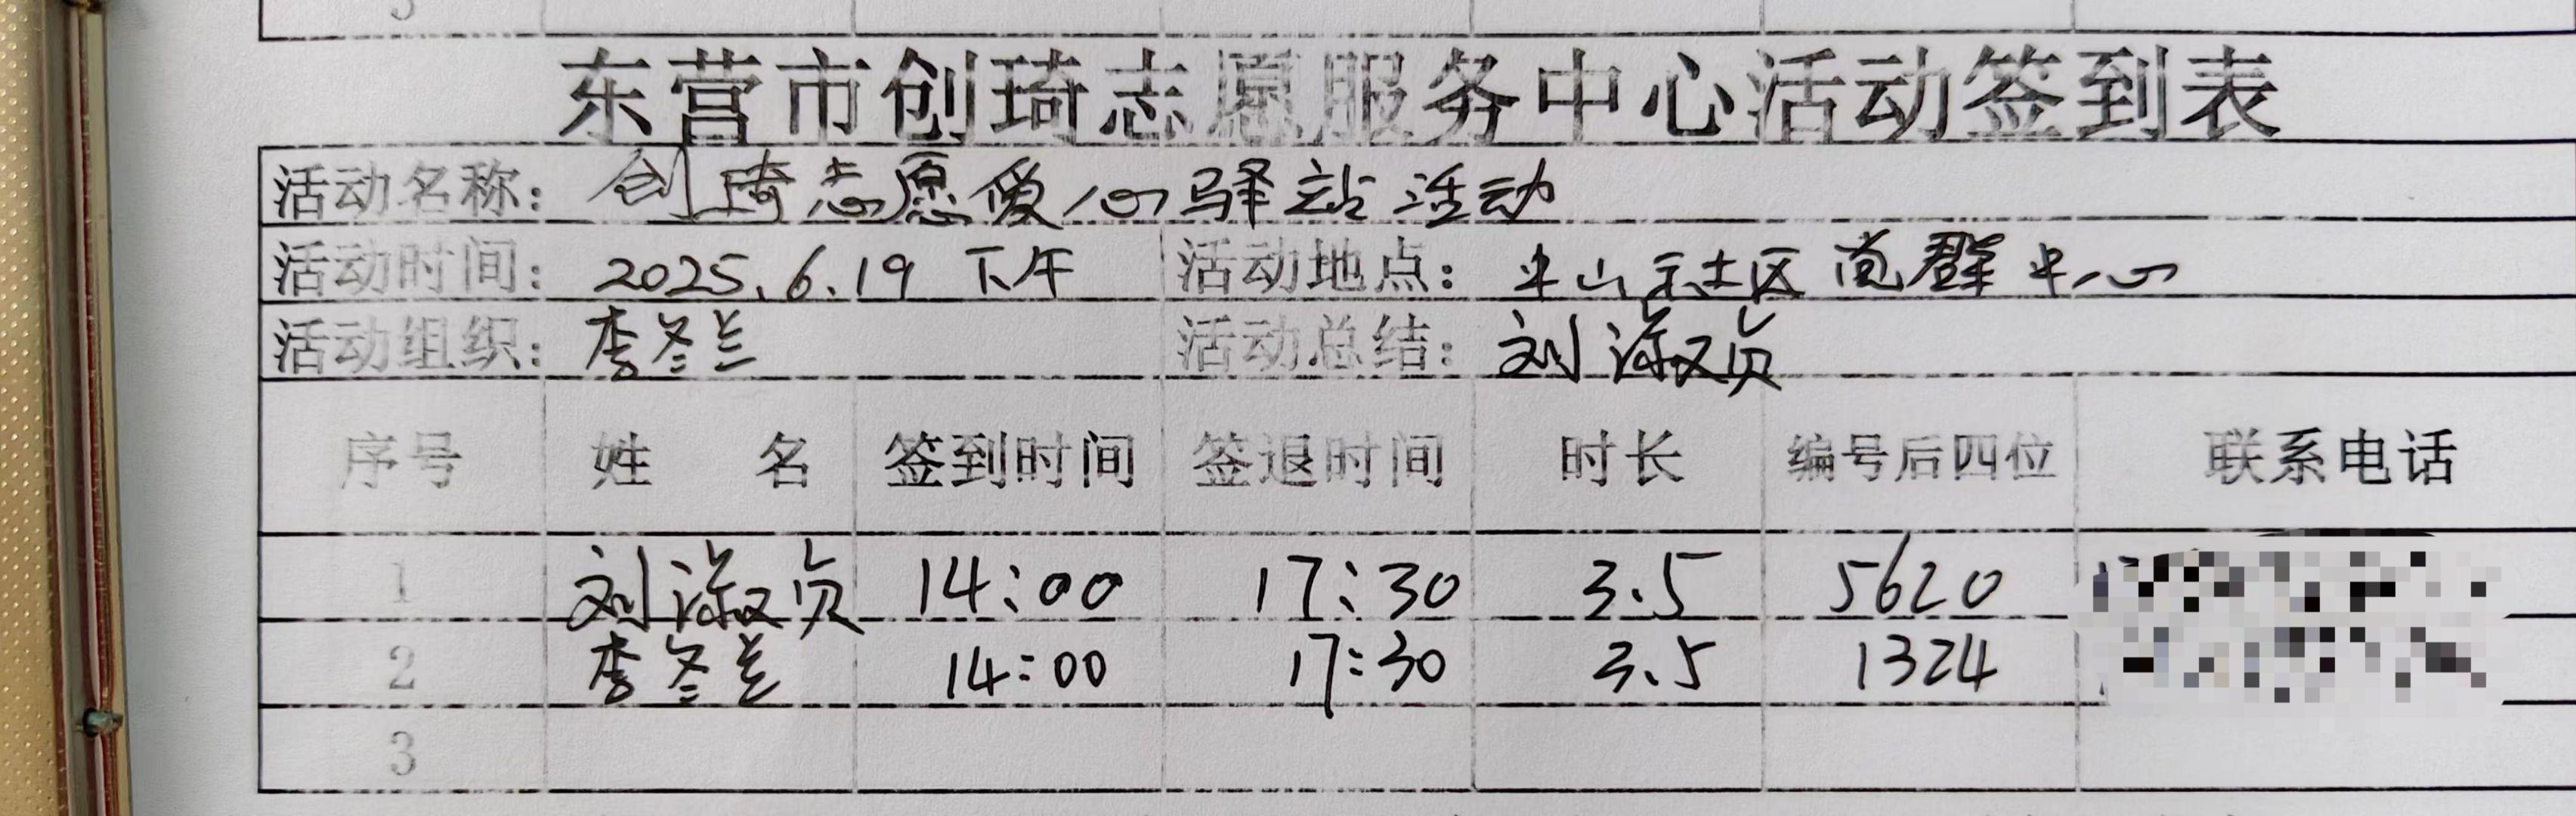 东营市创琦志愿服务中心活动签到表
活动名称: 创琦志愿爱心驿站活动
活动时间: 2025.6.19 下午 活动地点: 社区党群中心
活动组织: 李冬兰 活动总结: 刘淑贞
序号 姓 名 签到时间 签退时间 时长 编号后四位 联系电话
1 刘淑贞 14:00 17:30 3.5 5620
2 李冬兰 14:00 17:30 3.5 1324
3